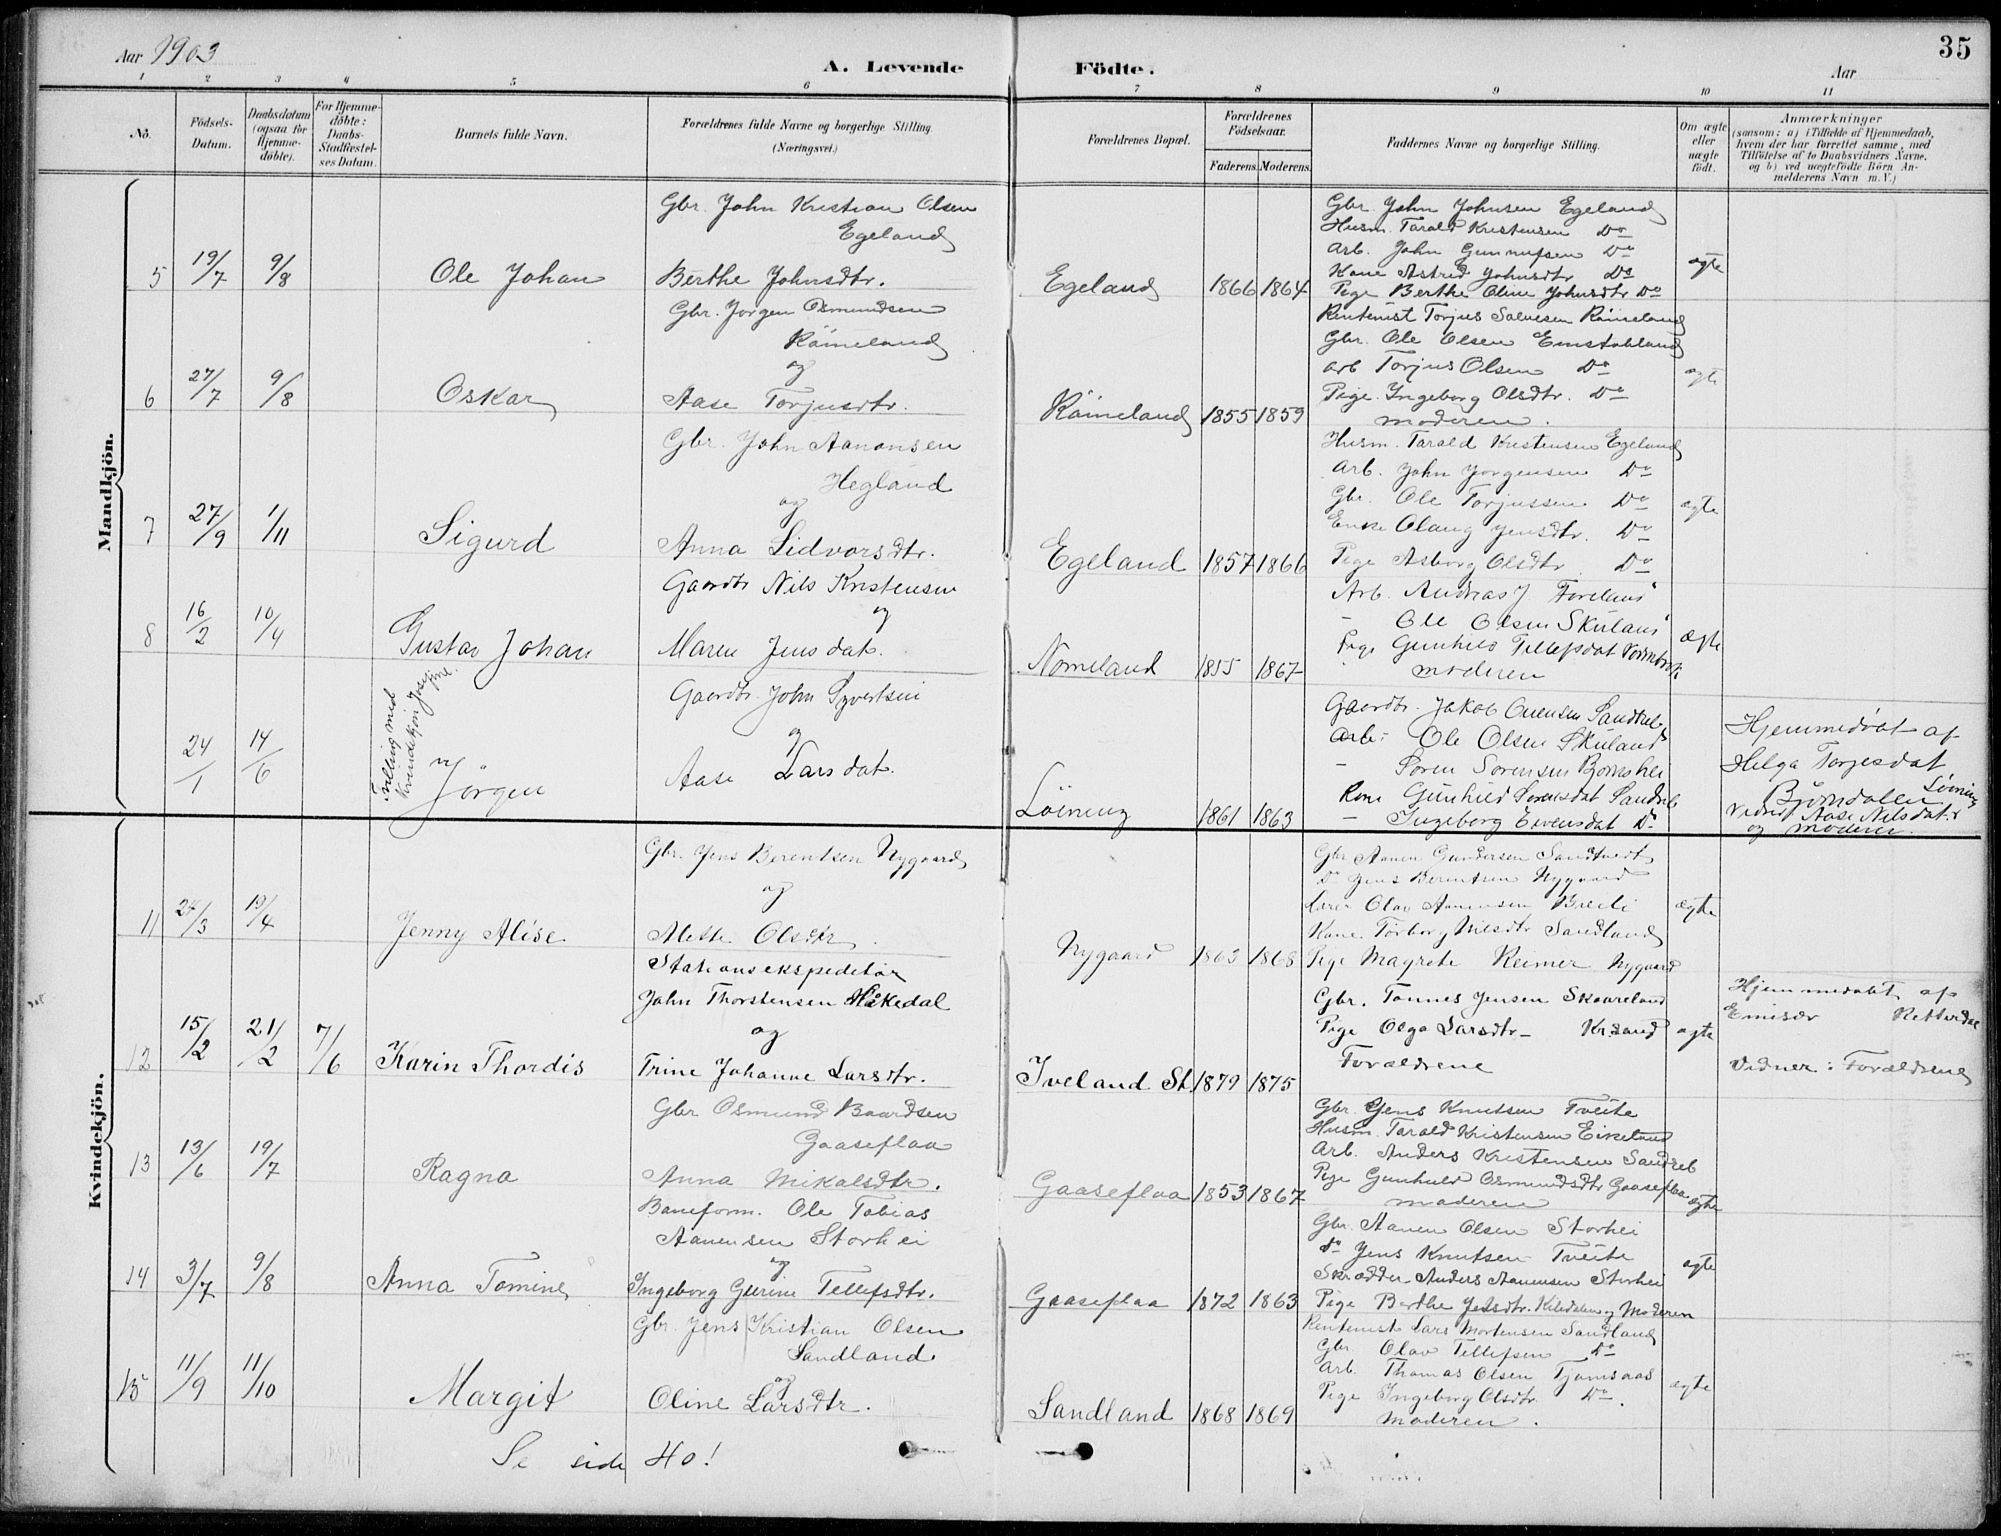 35
Aar 1903
A. Levende Födte.
Aar
1 2 3 4 5 6 7 8 9 10 11
No.
Födsels-Datum.
Daabsdatum (ogsaa for Hjemme-döbte).
For Hjemme-döbte: Daabs-Stadfæstel-ses Datum.
Barnets fulde Navn.
Forældrenes fulde Navne og borgerlige Stilling. (Næringsvei.)
Forældrenes Bopæl.
Forældrenes Födselsaar.
Faderens. Moderens.
Faddernes Navne og borgerlige Stilling.
Om ægte eller uægte födt.
Anmærkninger
(saasom: a) i Tilfælde af Hjemmedaab,
hvem der har forrettet samme, med
Tilföielse af to Daabsvidners Navne.
og b) ved uægtefödte Börn An-
melderens Navn m. V.)
Mandkjön.
5 19/7 9/8 Ole Johan
Gbr. John Kristian Olsen
Egeland
Berthe Johnsdtr.
Egeland 1866 1864
Gbr. John Johnsen Egeland
Husm. Tarald Kristensen Do
Arb. John Gunnufsen Do
Kone Astrid Johnsdtr Do
Pige Berthe Oline Johnsdtr Do
ægte
6 27/7 9/8 Oskar
Gbr. Jörgen Osmundsen
Råineland
og
Aase Torjusdtr.
Råineland 1855 1859
Rentenist Torjus Salvesen Råineland
Gbr. Ole Olsen Emstabland
Arb Torjus Olsen Do
Pige Ingeborg Olsdtr. Do
moderen.
ægte
7 27/9 1/11 Sigurd
Gbr. John Aanonsen
Hegland
og
Anna Sidvarsdtr.
Egeland 1857 1866
Husm. Tarald Kristensen Egeland
Arb. John Jörgensen Do
Gbr. Ole Torjussen Do
Enke Olaug Jensdtr. Do
Pige Asborg Olsdtr Do
ægte
8 16/2 10/4 Gustav Johan
Gaardbr Nils Kristensen
og
Maren Jensdat.
Nomeland 1855 1867
Arb. Andreas J Froland
- Ole Olsen Skuland
Pige Gunhild Tellefsdat
moderen
ægte
24/1 14/6
Tvilling med Kvindekjön
Jörgen
Gaardbr. John Syvertsen
og
Aase Larsdat.
Löining 1861 1863
Gaardbr. Jakob Ovensen Sandreb
Arb. Ole Olsen Skuland
- Soren Sorensen Bjornshei
Kone Gunhild Sorensdat Sandreb
- Ingeborg Evensdat Do
Hjemmedöbt af
Helga Torjesdat
Björndalen Löining
Vidner Aase Nilsdat.
og moderen.
Kvindekjön.
11 24/3 19/4 Jenny Alise
Gbr. Jens Berentsen Nygaard
og
Mette Olsdtr.
Nygaard 1863 1868
Gbr Aanen Gundersen Sandtvedt
Do Jens Berentsen Nygaard
Lærer Olav Aanensen Breili
Kone Torborg Nilsdtr Sandland
Pige Magrete Reimer Nygaard
ægte
12 15/2 21/2 7/6 Karin Thordis
Stationsekspeditör
John Thorstensen Håkedal
og
Trine Johanne Larsdtr.
Iveland St. 1879 1875
Gbr. Tönnes Jensen Skaareland
Pige Olga Larsdtr - Kr.sand
Forældrene
ægte
Hjemmedöbt af
Emisær Retterdal
Vidner: Forældrene
13 13/6 19/7 Ragna
Gbr Osmund Baardsen
Gaaseflaa
Anna Mikalsdtr.
Gaaseflaa 1853 1867
Gbr. Jens Knutsen Tveite
Husm. Tarald Kristensen Eikeland
Arb. Anders Kristensen Sandreb
Pige Gunhild Osmundsdtr Gaaseflaa
moderen
ægte
14 3/7 9/8 Anna Tomine
Baneform. Ole Tobias
Aanensen Storhei
og
Ingeborg Gurine Tellefsdtr.
Gaaseflaa 1872 1863
Gbr. Aanen Olsen Storhei
Do Jens Knutsen Tveite
Skrædder Anders Aanensen Storhei
Pige Berthe Jensdtr. Kiledalen og Moderen
ægte
15 11/9 11/10 Margit
Gbr. Jens Kristian Olsen
Sandland
og
Oline Larsdtr.
Sandland 1868 1869
Rentenist Lars Mortensen Sandland
Gbr Olav Tellefsen Do
Arb. Thomas Olsen Tjomsaas
Pige Ingeborg Olsdtr. Do.
Moderen.
ægte
Se side 40!